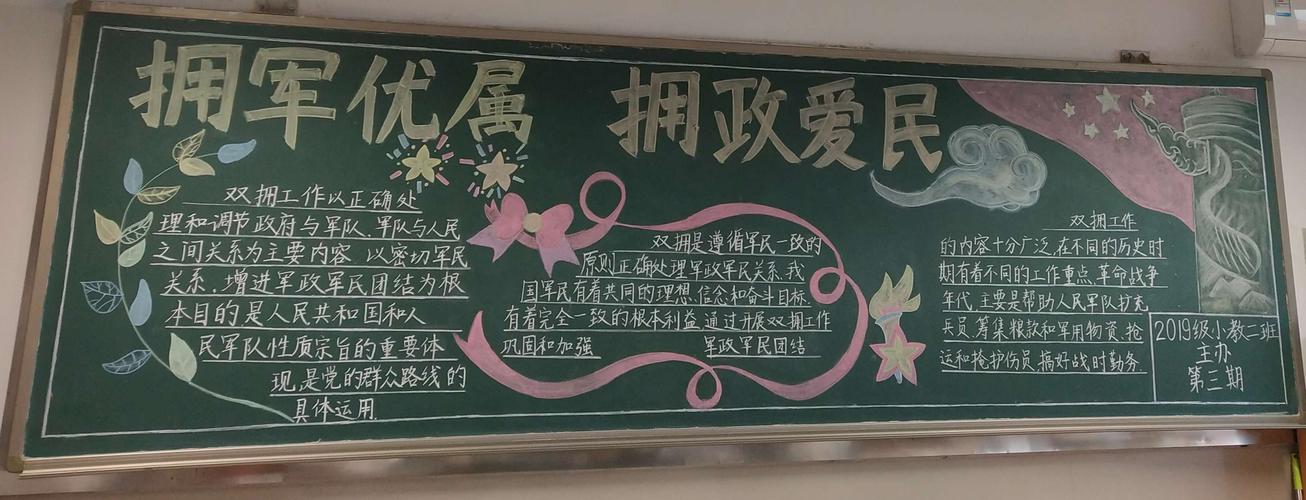 拥军优属 拥政爱民
双拥工作以正确处
理和调节政府与军队、军队与人民
之间关系为主要内容,以密切军民
关系,增进军政军民团结为根
本目的是人民共和国和人
民军队性质宗旨的重要体
现,是党的群众路线的
具体运用.
双拥是遵循军民一致的
原则正确处理军政军民关系,我
国军民有着共同的理想、信念和奋斗目标,
有着完全一致的根本利益,通过开展双拥工作
巩固和加强 军政军民团结
双拥工作
的内容十分广泛,在不同的历史时
期有着不同的工作重点,革命战争
年代,主要是帮助人民军队扩充
兵员,筹集粮款和军用物资,抢
运和掩护伤员,搞好战时勤务.
2019级小教二班
主办
第三期